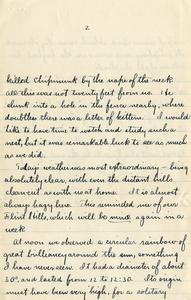 2
killed chipmunk by the nape of the neck
all this was not twenty feet from us. He
slunk into a hole in the fence nearby, where
doubtless there was a litter of kittens. I would
like to have time to watch and study, such a
nest, but it was remarkable luck to see as much
as we did.
Today weather was most extraordinary – being
absolutely clear, with even the distant hills
clearcut as with us at home. It is almost
always hazy here. This reminded me of our
Flint Hills, which will be mine again in a
week
At noon we observed a circular rainbow of
great brilliancy around the sun, something
I have never seen. It had a diameter of about
30°, and lasted from 12 to 12:30. Its origin
must have been very high, for a solitary